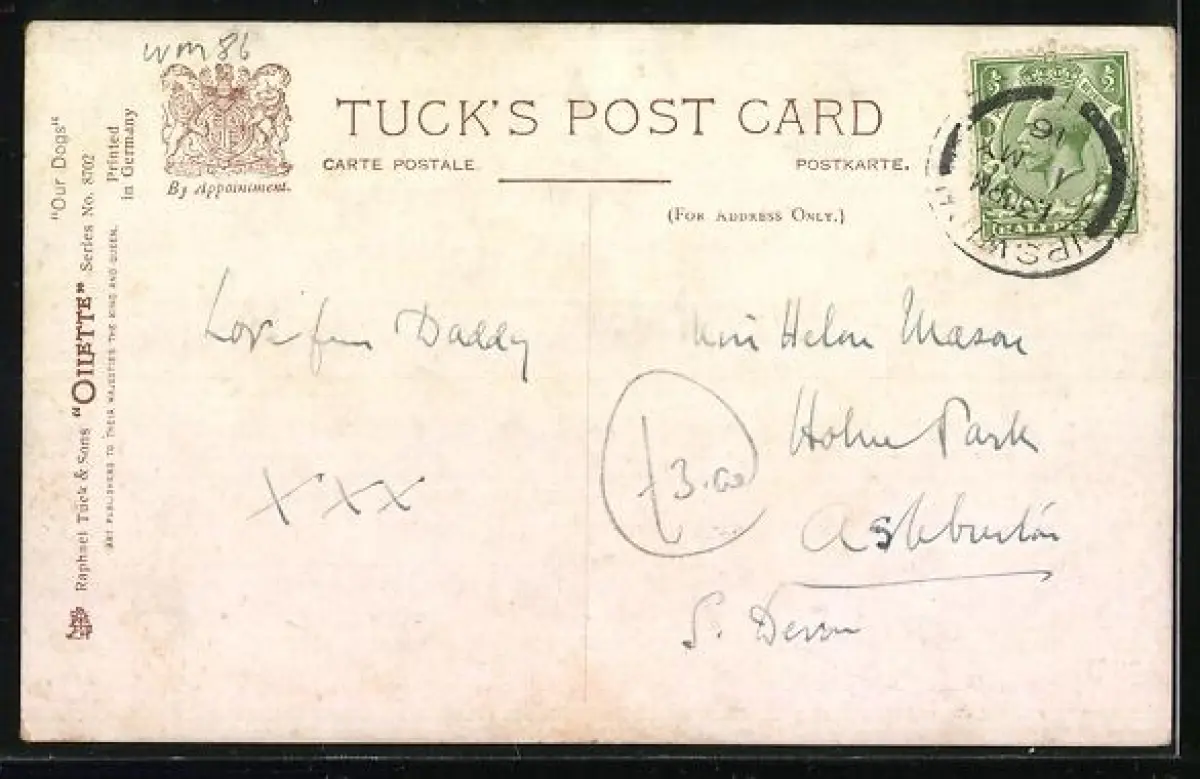 wm 86
TUCK'S POST CARD
CARTE POSTALE
POSTKARTE.
By Appointment.
(FOR ADDRESS ONLY.)
"Our Dogs"
Raphael Tuck & Sons "OILETTE" Series No. 8702
Printed
in Germany
ART PUBLISHERS TO THEIR MAJESTIES THE KING AND QUEEN.
½ ½
HALFPENNY
1.30PM
1 MY
16
Love from Daddy
XXX
Miss Helen Mason
Holne Park
Ashburton
S. Devon
3.00